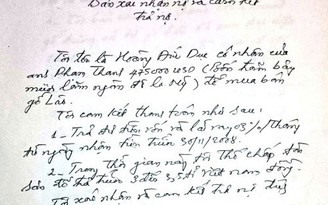 Bản xác nhận nợ và cam kết
trả nợ.
Tôi tên là Hoàng Đức Dục có nhận của
anh Phan Thanh 475000 USD (Bốn trăm bảy
mươi lăm ngàn đô la mỹ) để mua bán
gỗ Lào.
Tôi cam kết thanh toán như sau:
1- Trả đủ tiền vốn và lãi suy 3%/tháng
từ ngày nhận tiền đến 30/11/2008.
2- Trong thời gian này tôi thế chấp
sản để trả tiền 3 đến 3,5 tỉ việt nam đồng.
Tôi xác nhận và cam kết trả nợ